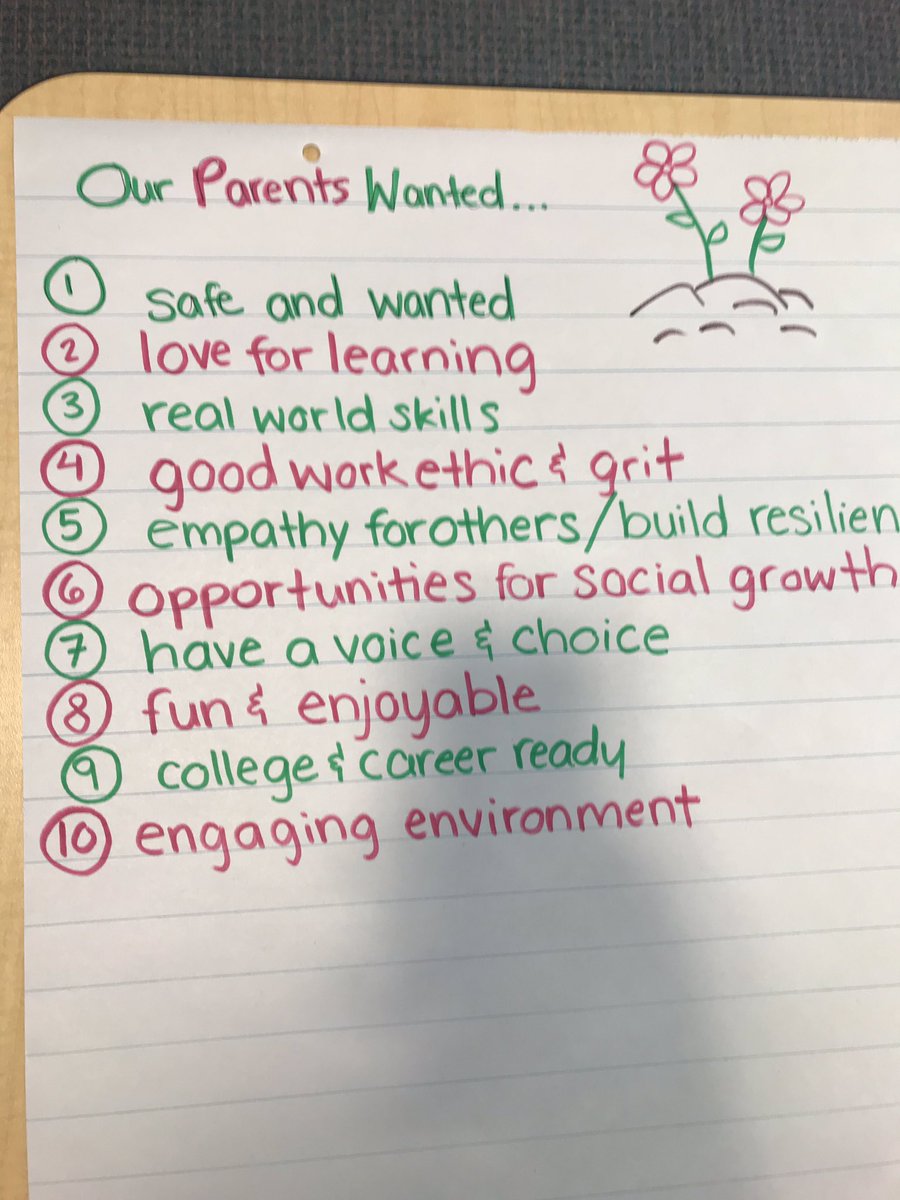 Our Parents Wanted...
1 safe and wanted
2 love for learning
3 real world skills
4 good work ethic & grit
5 empathy for others/build resilien
6 opportunities for social growth
7 have a voice & choice
8 fun & enjoyable
9 college & career ready
10 engaging environment